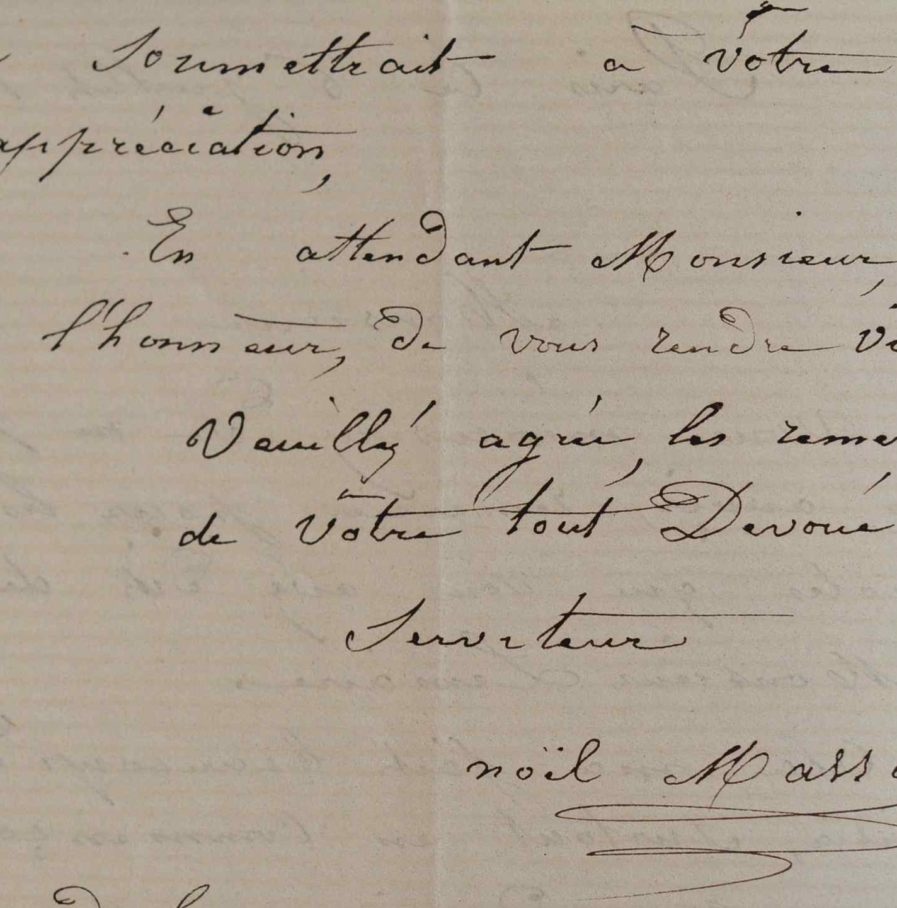 Soumettrait a Votre
appréciation,
En attendant Monsieur,
l'honneur, de vous rendre
Veuilléz agréer, les
de Vôtre tout Devoué
Serviteur
noïl Mass